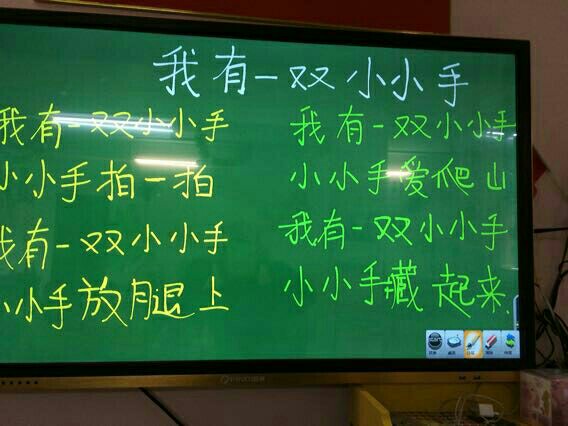 我有一双小小手
我有一双小小手
小小手拍一拍
我有一双小小手
小小手放腿上
我有一双小小手
小小手爱爬山
我有一双小小手
小小手藏起来